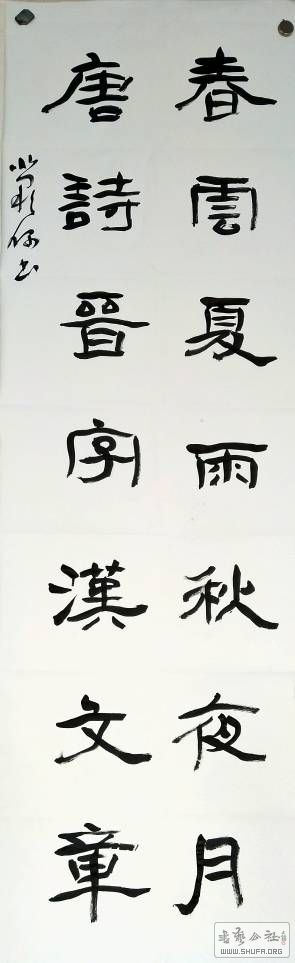 春雲夏雨秋夜月
唐詩晉字漢文章
书艺公社
WWW.SHUFA.ORG